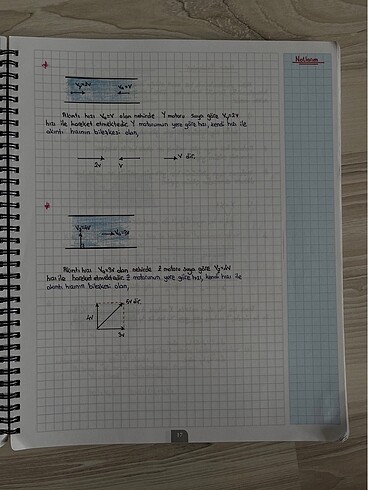 Notlarım
Vy=2V Va=V
Akıntı hızı Va=V olan nehirde Y motoru suya göre Vy=2V
hızı ile hareket etmektedir. Y motorunun yere göre hızı, kendi hızı ile
akıntı hızının bileşkesi olan,
2V V V dir.
Vz=4V Va=3V
Akıntı hızı Va=3V olan nehirde Z motoru suya göre Vz=4V
hızı ile hareket etmektedir. Z motorunun yere göre hızı, kendi hızı ile
akıntı hızının bileşkesi olan,
5V dir.
4V
3V
17